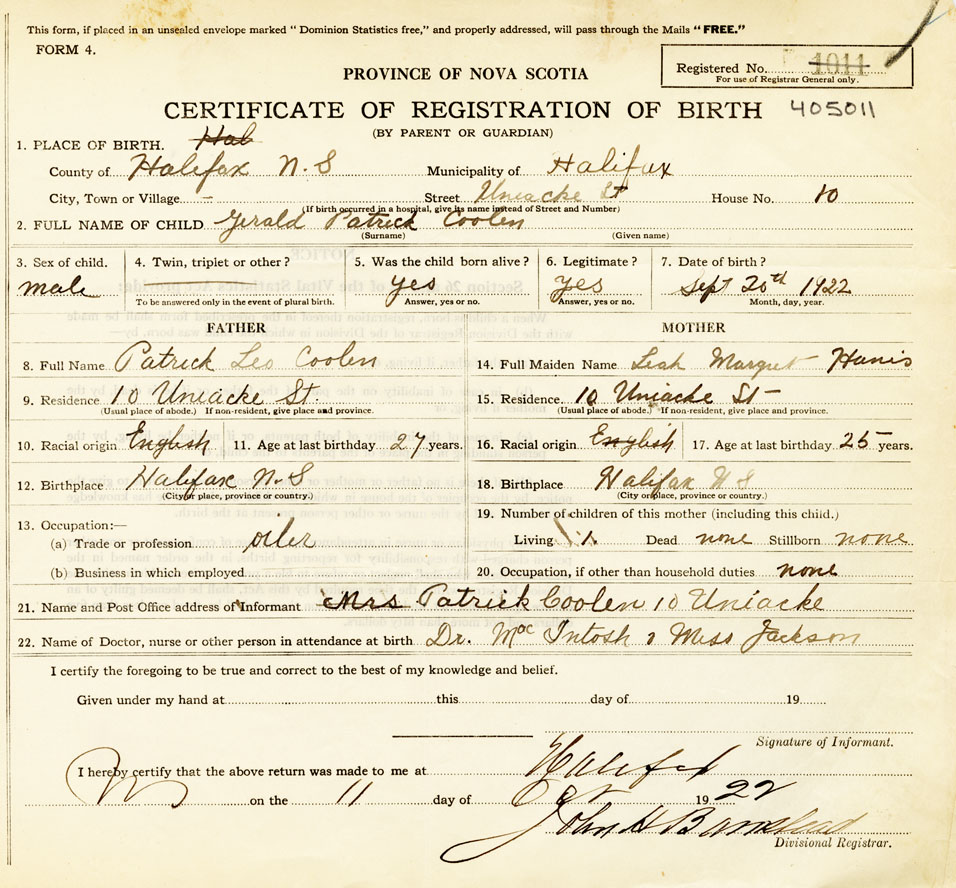 This form, if placed in an unsealed envelope marked “ Dominion Statistics free,” and properly addressed, will pass through the Mails “FREE.”
FORM 4.
Registered No. 1011
For use of Registrar General only.
PROVINCE OF NOVA SCOTIA
CERTIFICATE OF REGISTRATION OF BIRTH 405011
(BY PARENT OR GUARDIAN)
1. PLACE OF BIRTH. Hal
County of Halifax N. S Municipality of Halifax
City, Town or Village – Street Uniacke St House No. 10
(If birth occurred in a hospital, give its name instead of Street and Number)
2. FULL NAME OF CHILD Gerald Patrick Coolen
(Surname) (Given name)
3. Sex of child. 4. Twin, triplet or other? 5. Was the child born alive? 6. Legitimate? 7. Date of birth?
male yes yes Sept 20th 1922
To be answered only in the event of plural birth. Answer, yes or no. Answer, yes or no. Month, day, year.
FATHER MOTHER
8. Full Name Patrick Leo Coolen 14. Full Maiden Name Leah Margret
9. Residence 10 Uniacke St. 15. Residence. 10 Uniacke St –
(Usual place of abode.) If non-resident, give place and province. (Usual place of abode.) If non-resident, give place and province.
10. Racial origin English 11. Age at last birthday 27 years. 16. Racial origin English 17. Age at last birthday 25 years.
12. Birthplace Halifax N. S 18. Birthplace Halifax N S
(City or place, province or country.) (City or place, province or country.)
13. Occupation:— 19. Number of children of this mother (including this child.)
(a) Trade or profession oiler Living 1. Dead none Stillborn none
(b) Business in which employed 20. Occupation, if other than household duties none
21. Name and Post Office address of Informant Mrs Patrick Coolen 10 Uniacke
22. Name of Doctor, nurse or other person in attendance at birth Dr. MacIntosh & Miss Jackson
I certify the foregoing to be true and correct to the best of my knowledge and belief.
Given under my hand at this day of 19
Signature of Informant.
I hereby certify that the above return was made to me at Halifax
on the 11 day of Oct 1922
John H Barnstead
Divisional Registrar.